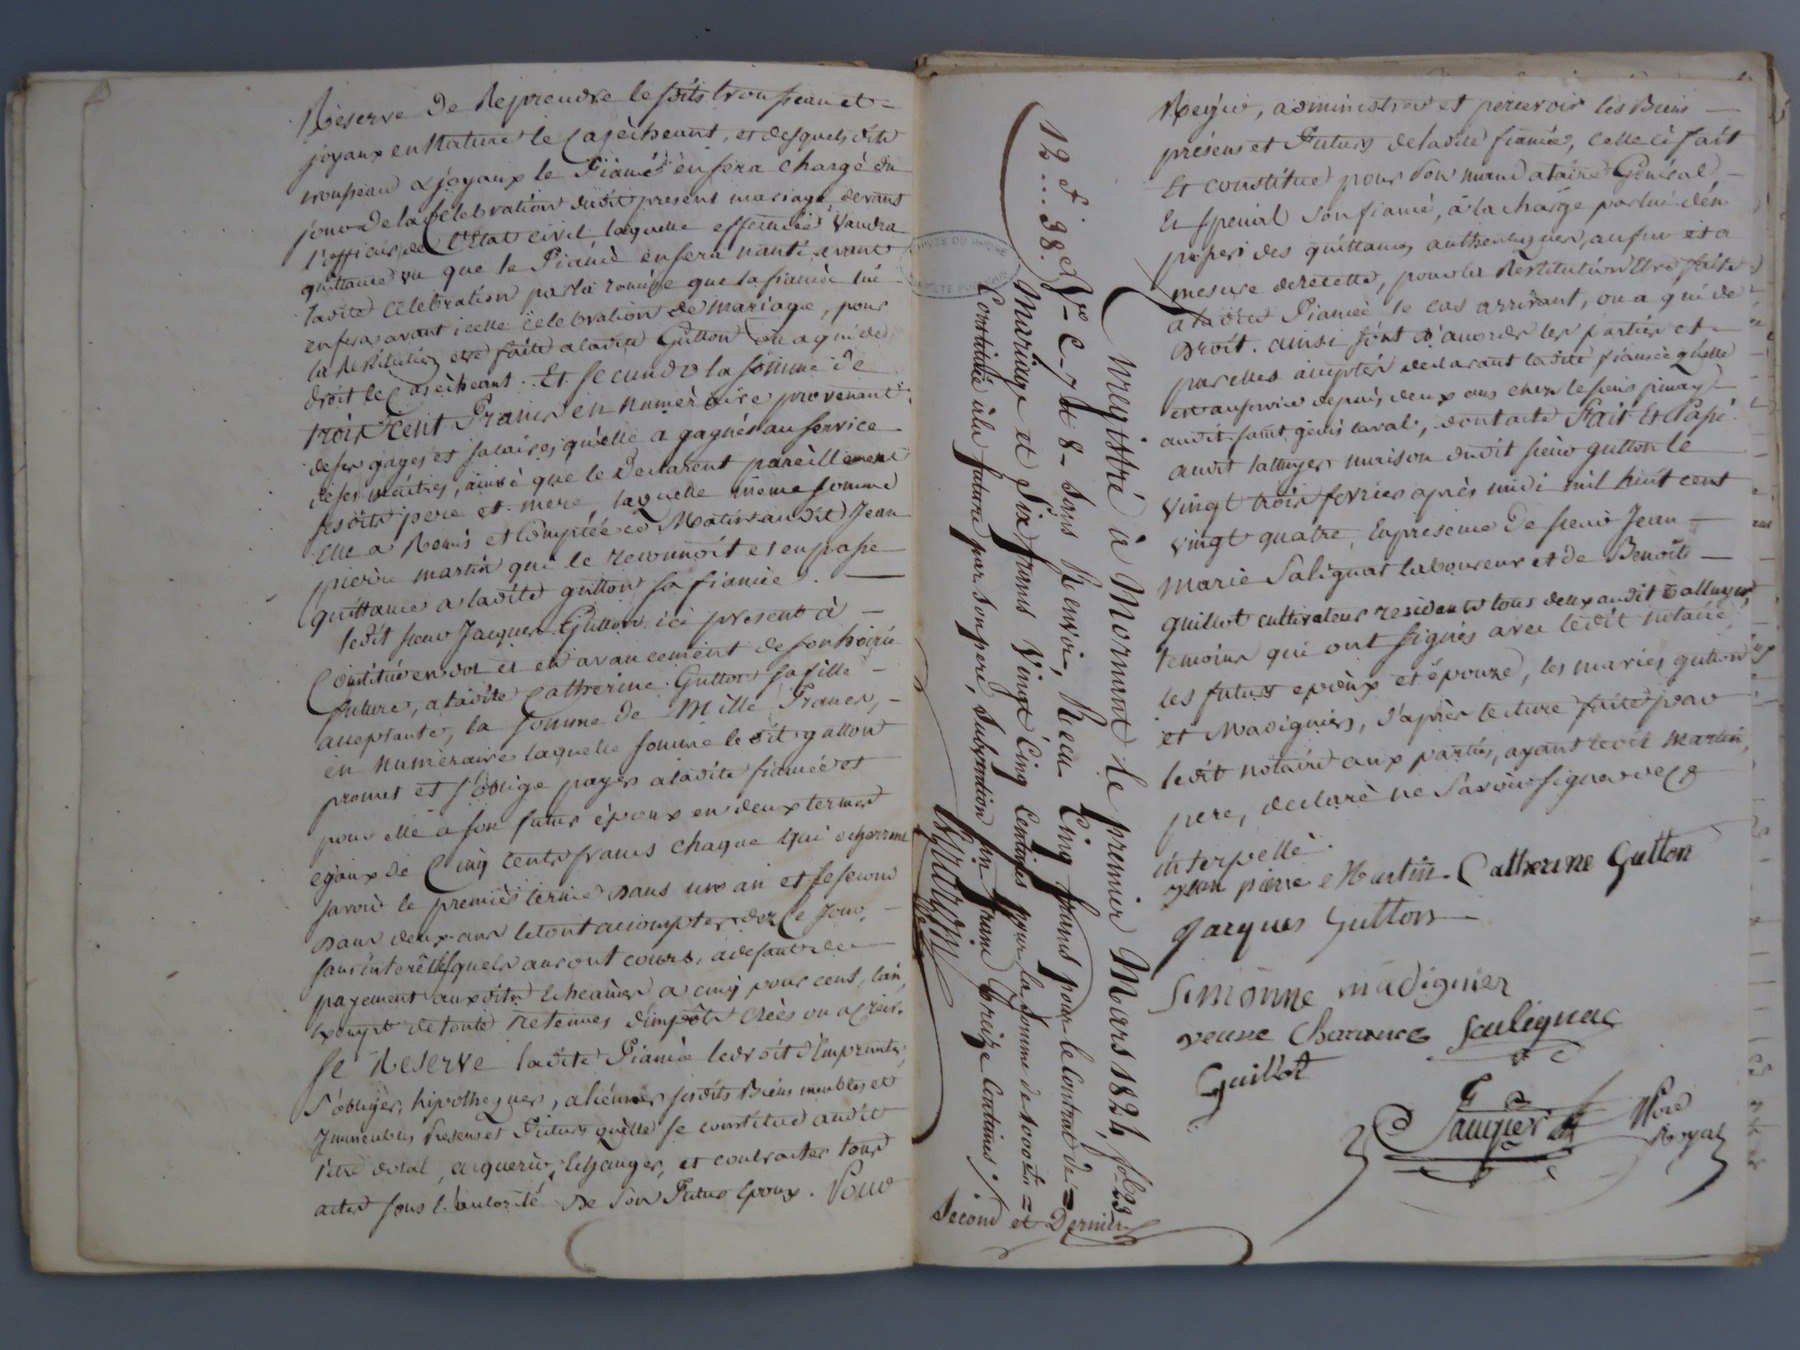 Réserve de Reprendre lesdits trousseau et
joyaux en Nature le Cas échéant, et desquels dits
trousseau & joyaux le Fiancé en sera chargé du
jour de la Célébration dudit present mariage devant
l'officier de l'Etat civil laquelle effectuée Vaudra
quittance vu que le Fiancé en sera nanti avant
ladite célébration par la remise que la fiancée lui
en fera avant icelle célébration de mariage, pour
la Restitution etre faite a ladite Gutton ou a qui de
droit le Cas échéant. Et Secundo la somme de
trois cent Francs en numéraire provenant
de ses gages et salaires qu'elle a gagnés au service
de ses maitres, ainsi que le Déclarent pareillement
sesdits pere et mere, laquelle même somme
Elle a Remis et Comptée ce Matin audit Jean
pierre martin qui le reconnoit et en passe
quittance a ladite gutton sa fiancée.
ledit sieur Jacques Gutton ici present à
Constitué en dot et en avancement de son hoirie
future, a ladite Catherine Gutton sa fille
acceptante, la somme de Mille Francs,
en numéraire laquelle somme ledit gutton
promet et s'oblige payer a ladite fiancée et
pour elle a son futur époux en deux termes
egaux de Cinq cents francs chaque qui echerront
savoir le premier terme dans un an et le second
dans deux ans le tout a compter de ce jour,
sans interêts lesquels auront cours, a defaut de
payement auxdites Echéances a cinq pour cent, l'an,
exempt de toute retenues d'impôts créés ou a créer.
Se Reserve ladite Fiancée le droit d'Emprunter,
s'obliger, hipothequer, aliéner sesdits Biens meubles et
Immeubles Presens et Futurs qu'elle se constitue audit
titre dotal, acquerir, Echanger, et contracter tous
actes sous l'autorité de son Futur Epoux. Pour
12 f
... 38 c
Enregistré à Mornant le premier Mars 1824, fol. 23
Vo C. 7 et 8 - Sans Renvoi, Recu Cinq francs pour le Contrat de =
Mariage et Six francs Vingt Cinq Centimes pour la Somme de 1000 fr =
Constituée à la future par son pere, Subvention un franc treize Centimes ./.
Second et Dernier
Regir, administrer et percevoir les Biens
présens et Futurs de ladite fiancée, celle ci fait
Et constitue pour son mandataire Général
Et special son fiancé, à la charge par lui d'en
passer des quittances authentiques, au fur et a
mesure de recette, pour la Restitution Etre faite
a ladite Fiancée le cas arrivant, ou a qui de
Droit. ainsi sont d'accords les parties et
par elles accepter declarant ladite fiancée qu'elle
est au service depuis deux ans chez le sieur pinay
audit saint genis laval, dont acte Fait Et Passé
audit taluyers maison dudit sieur gutton le
vingt trois fevrier après midi mil huit cent
vingt quatre, En presence de sieur Jean
Marie Salignat laboureur et de Benoît
guillot cultivateur residants tous deux audit talluyers
temoins qui ont signés avec ledit notaire,
les futurs epoux et épouze, les mariés gutton
et Madignier, d'après lecture faite par
ledit notaire aux parties, ayant ledit Martin,
pere, declaré ne Savoir signer de ce
interpellé.
jean pierre Martin Catherine Gutton
Jacques Gutton
Simonne madignier
veuve Salignat
Guillot
Nore
Royal